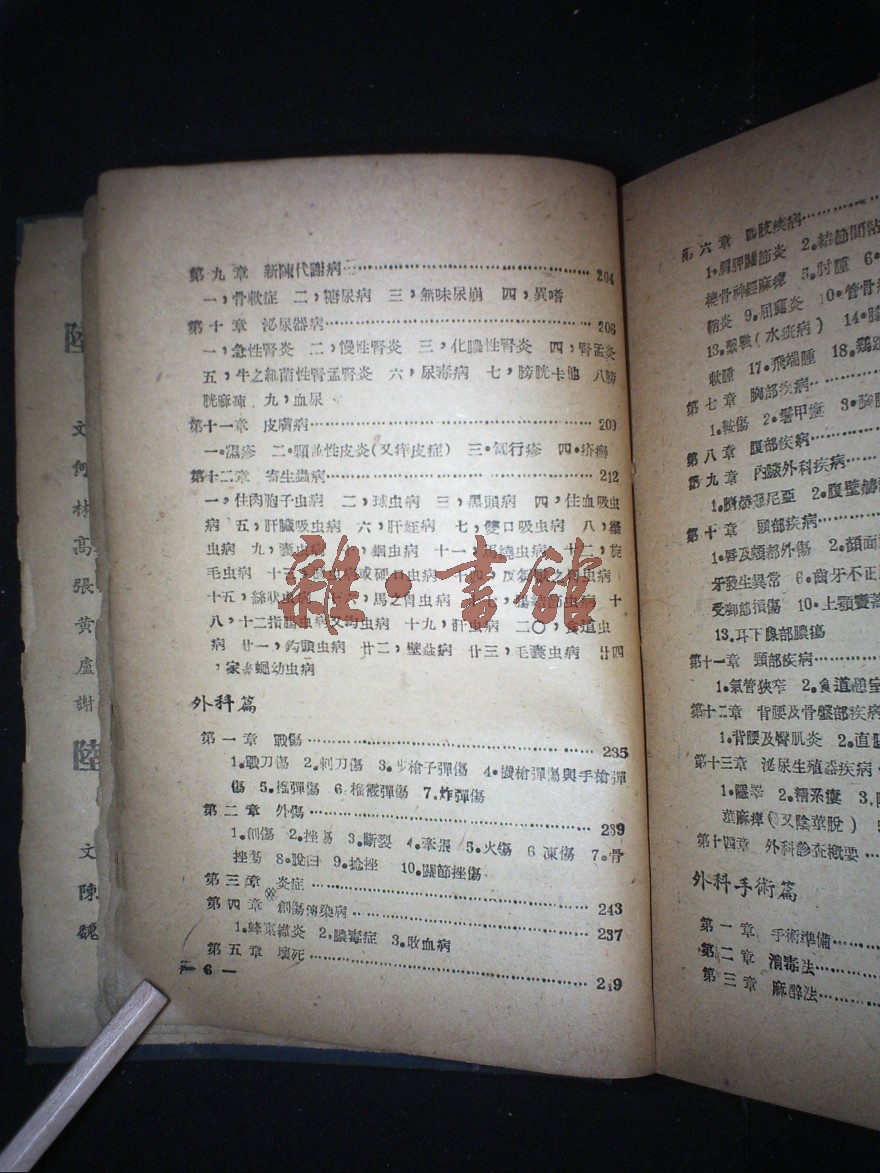 第九章 新陳代謝病 204
一,骨軟症 二,糖尿病 三,無味尿崩 四,異嗜
第十章 泌尿器病 206
一,急性腎炎 二,慢性腎炎 三,化膿性腎炎 四,腎盂炎
五,牛之細菌性腎盂腎炎 六,尿毒病 七,膀胱卡他 八膀
胱麻痺 九,血尿
第十一章 皮膚病 209
一•濕疹 二•頭部性皮炎(又痒皮症) 三•匐行疹 四•疥癬
第十二章 寄生蟲病 212
一,住肉胞子虫病 二,球虫病 三,黑頭病 四,住血吸虫
病 五,肝臟吸虫病 六,肝蛭病 七,雙口吸虫病 八,
虫病 九,囊虫病 蛔虫病 十一,馬蟯虫病 十二,旋
毛虫病 十三, 虫病或硬口虫病 十四,反芻獸之胃虫病
十五,絲狀虫病 馬之胃虫病 結節虫病 十
八,十二指腸虫病又鈎虫病 十九,肝虫病 二〇,食道虫
病 廿一,鈎頭虫病 廿二,壁蝨病 廿三,毛囊虫病 廿四
,家 蠅幼虫病
外科篇
第一章 戰傷 235
1.戰刀傷 2.刺刀傷 3.步槍子彈傷 4.機槍彈傷與手槍彈
傷 5.榴彈傷 6.榴霰彈傷 7.炸彈傷
第二章 外傷 239
1.創傷 2.挫傷 3.斷裂 4.牽張 5.火傷 6 凍傷 7.骨
挫傷 8.脫臼 9.捻挫 10.關節挫傷
第三章 炎症 243
第四章 創傷傳染病 237
1.蜂窠織炎 2.膿毒症 3.敗血病
第五章 壞死 249
— 6 —
雜•書館
第六章 四肢疾病
1.肩胛關節炎 2.結節間粘
橈骨神經麻痺 5.肘腫 6.
鞘炎 9.屈腱炎 10.管骨
13.繫皸(水疵病) 14.
軟腫 17.飛端腫 18.
第七章 胸部疾病
1.鞍傷 2.鬐甲瘻 3.胸
第八章 腹部疾病
第九章 內臟外科疾病
1.臍赫尼亞 2.腹壁赫
第十章 頭部疾病
1.唇及頰部外傷 2.顏面
牙發生異常 6.齒牙不正
受卸部損傷 10.上顎竇蓄
13.耳下腺部膿瘍
第十一章 頸部疾病
1.氣管狹窄 2.食道
第十二章 背腰及骨盤部疾病
1.背腰及臀肌炎 2.直
第十三章 泌尿生殖器疾病
1.隱睾 2.精系瘻 3.
莖麻痺(又陰莖脫)
第十四章 外科診查概要
外科手術篇
第一章 手術準備
第二章 消毒法
第三章 麻醉法
陸
文
何
林
高
張
黃
盧
謝
陸
文
陳
魏